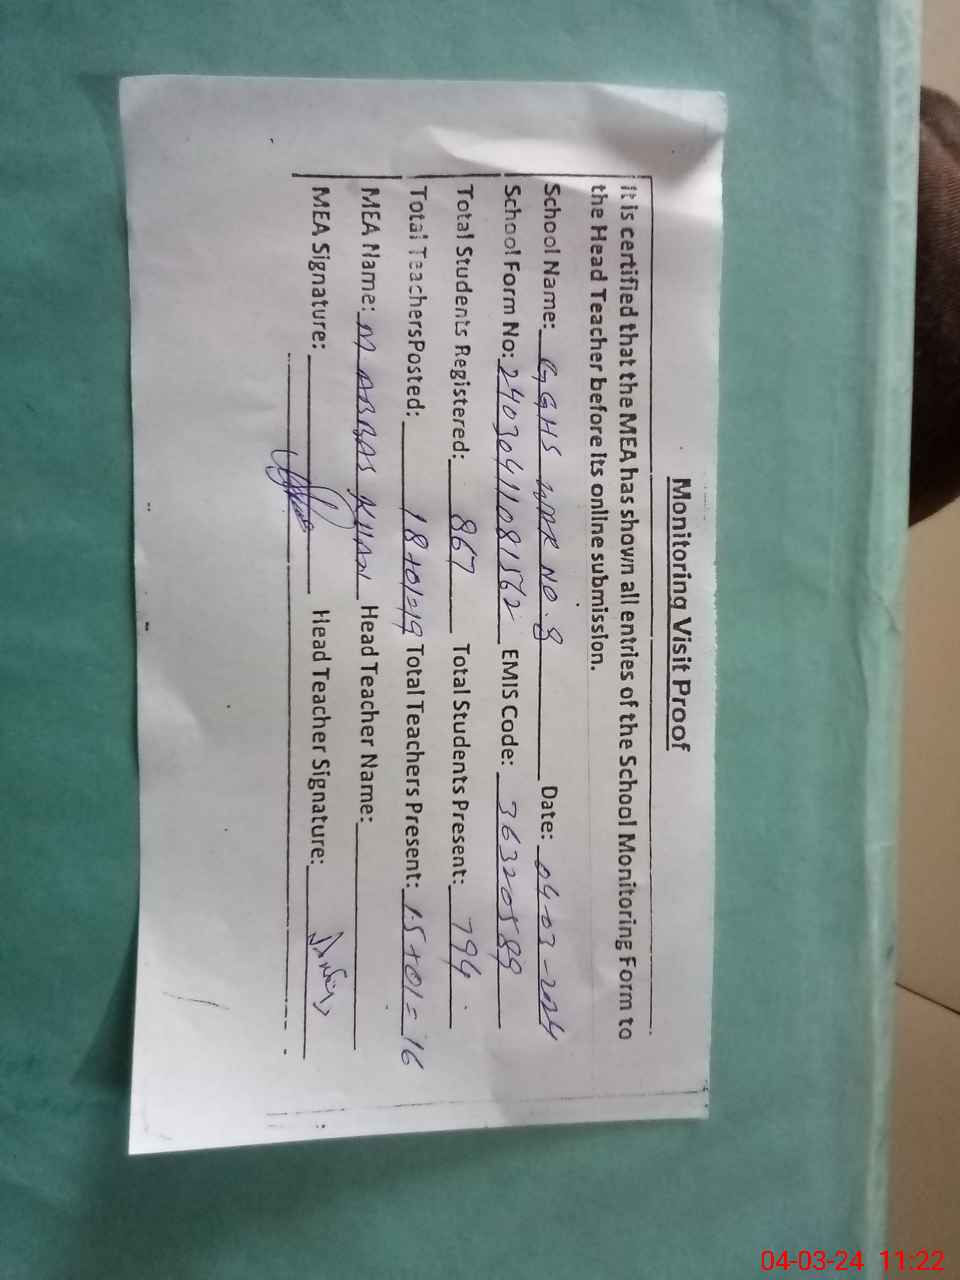 Monitoring Visit Proof
It is certified that the MEA has shown all entries of the School Monitoring Form to
the Head Teacher before its online submission.
School Name: GGHS WAR NO. 8 Date: 04-03-2024
School Form No: 24030411081562 EMIS Code: 36320589
Total Students Registered: 867 Total Students Present: 794
Total TeachersPosted: 18+01=19 Total Teachers Present: 15+01=16
MEA Name: M ABBAS KHAN Head Teacher Name:
MEA Signature: Head Teacher Signature:
04-03-24 11:22